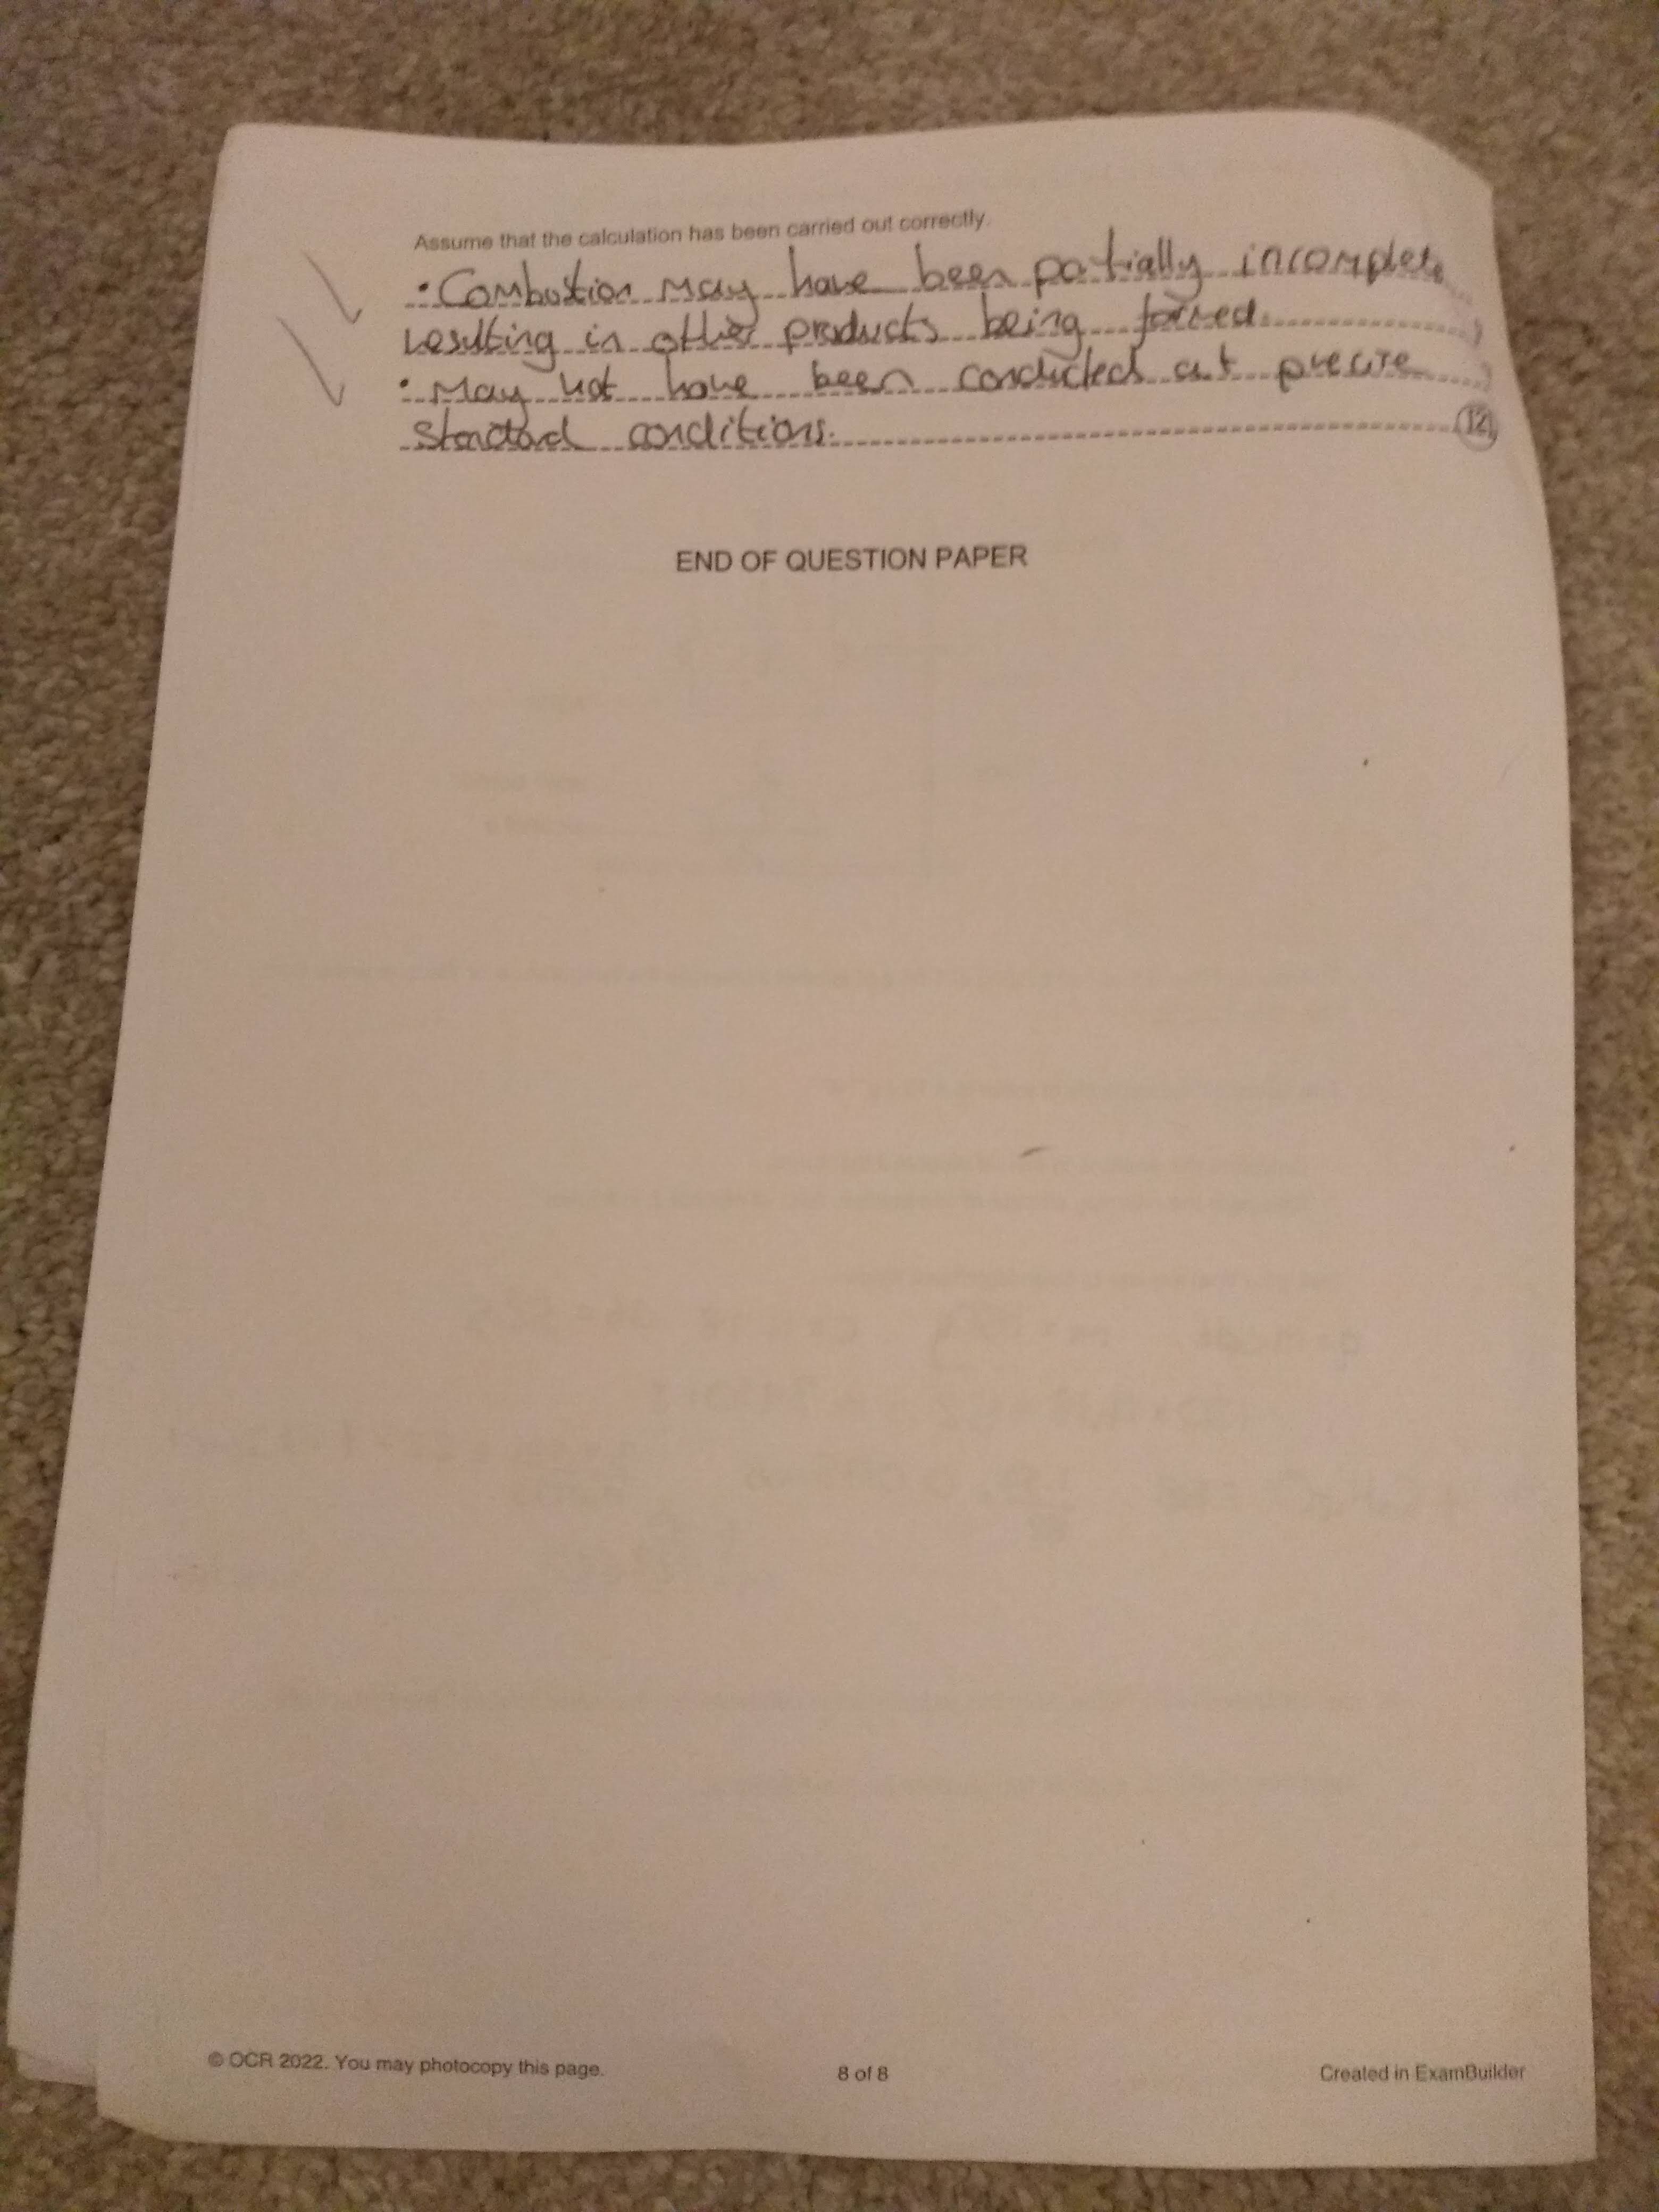 Assume that the calculation has been carried out correctly.
• Combustion may have been partially incomplete
resulting in other products being formed.
• May not have been conducted at precise
standard conditions.
[2]
END OF QUESTION PAPER
© OCR 2022. You may photocopy this page.
8 of 8
Created in ExamBuilder